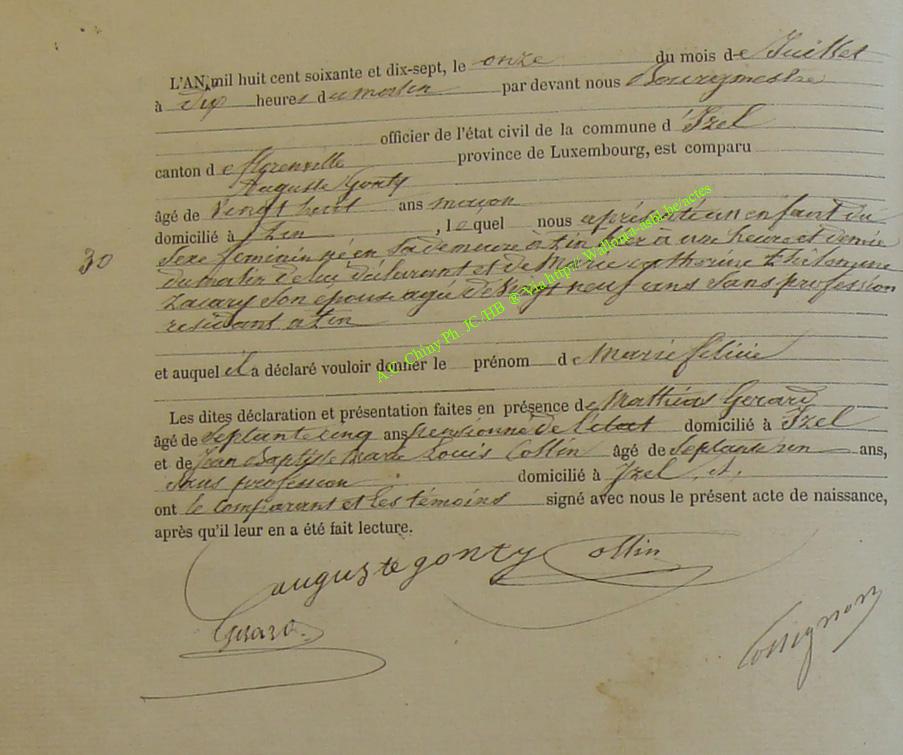 L'AN mil huit cent soixante et dix-sept, le onze du mois de Juillet
à dix heures du matin par devant nous Bourgmestre
officier de l'état civil de la commune d'Izel
canton de florenville province de Luxembourg, est comparu
Auguste Gonty
âgé de vingt huit ans maçon
domicilié à , lequel nous a présenté un enfant du
30
sexe feminin né en sa demeure à hier à une heure et demie
du matin de lui déclarant et de Marie catherine
Zacary son épouse agé de vingt neuf ans sans profession
residant a
et auquel il a déclaré vouloir donner le prénom de Marie felicie
Les dites déclaration et présentation faites en présence de Mathias Gerard
âgé de septante cinq ans pensionné de l'état domicilié à Izel
et de Jean Baptiste Marie Louis Collin âgé de septante un ans,
sans profession domicilié à Izel, et
ont le comparant et les témoins signé avec nous le présent acte de naissance,
après qu'il leur en a été fait lecture.
auguste gonty Collin
Gerard
Chiny Ph JC-HB @ Via http:// Wallonia-asbl.be/actes